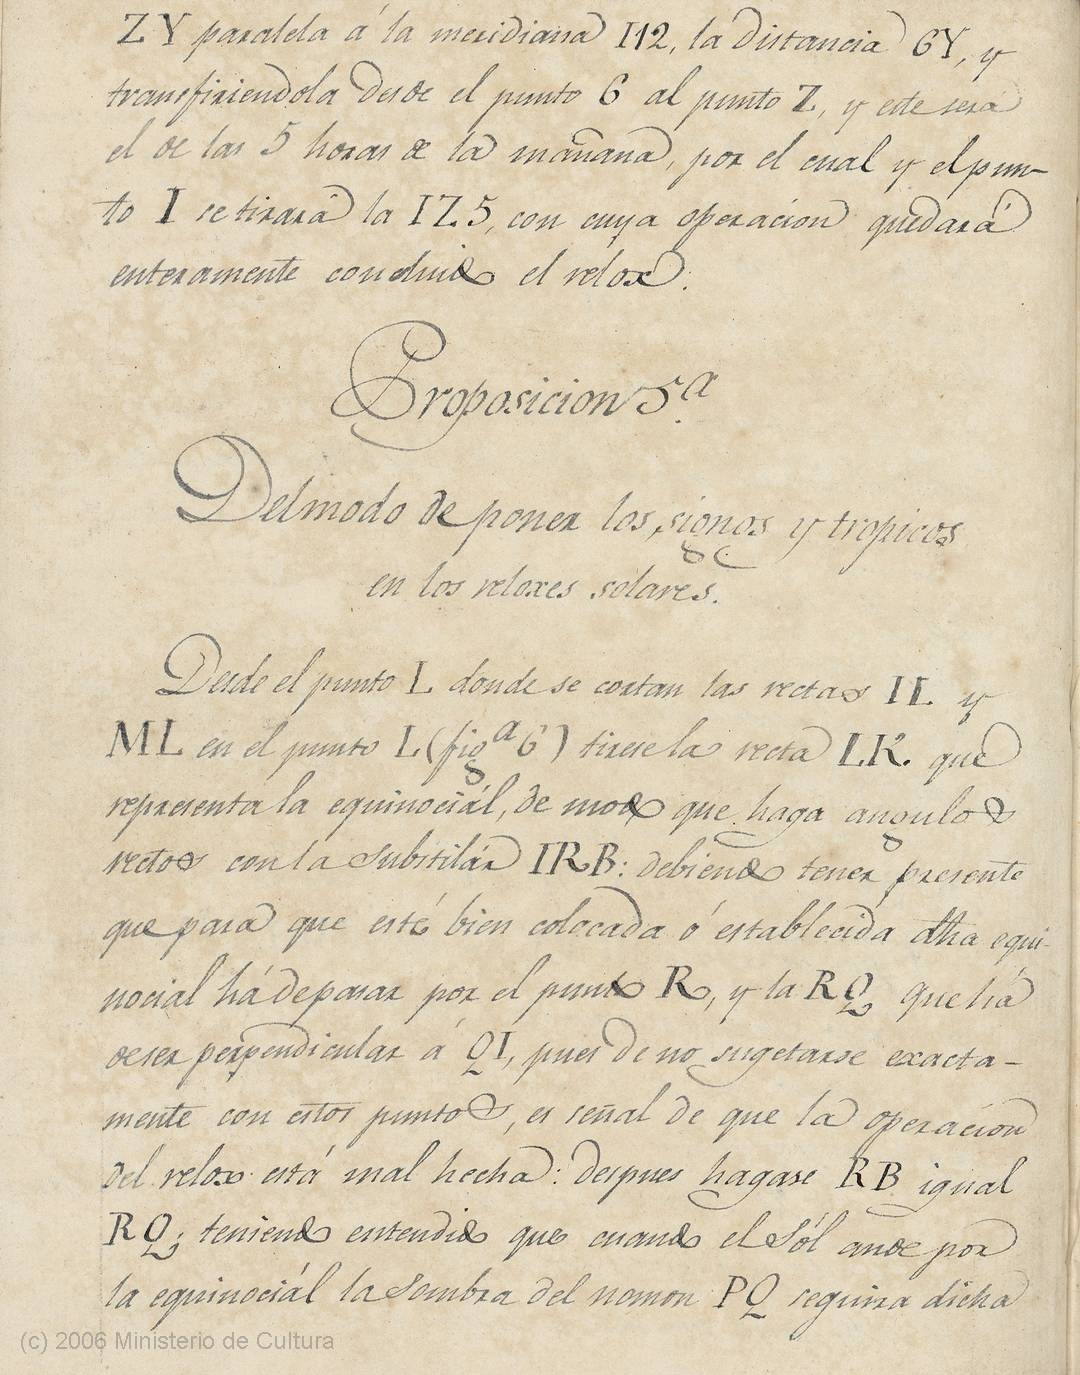 ZY paralela á la meridiana I12, la distancia 6Y, y
transfiriendola desde el punto 6 al punto Z, y este será
el de las 5 horas de la mañana, por el cual y el pun-
to I se tirará la IZ5, con cuya operacion quedará
enteramente concluido el relox.
Proposicion 5.a
Del modo de poner los signos y tropicos
en los reloxes solares.
Desde el punto L donde se cortan las rectas IL y
ML en el punto L (fig.a 6) tirese la recta LK. que
representa la equinociál, de modo que haga angulos
rectos con la Substilár IRB: debiendo tener presente
que para que esté bien colocada ó establecida dha equi-
nocial há de pasar por el punto R, y la RQ, que há
de ser perpendicular á QI, pues de no sugetarse exacta-
mente con estos puntos, es señal de que la operacion
del relox está mal hecha: despues hagase RB igual
RQ; teniendo entendido que cuando el Sól ande por
la equinociál la Sombra del nomon PQ seguira dicha
(c) 2006 Ministerio de Cultura